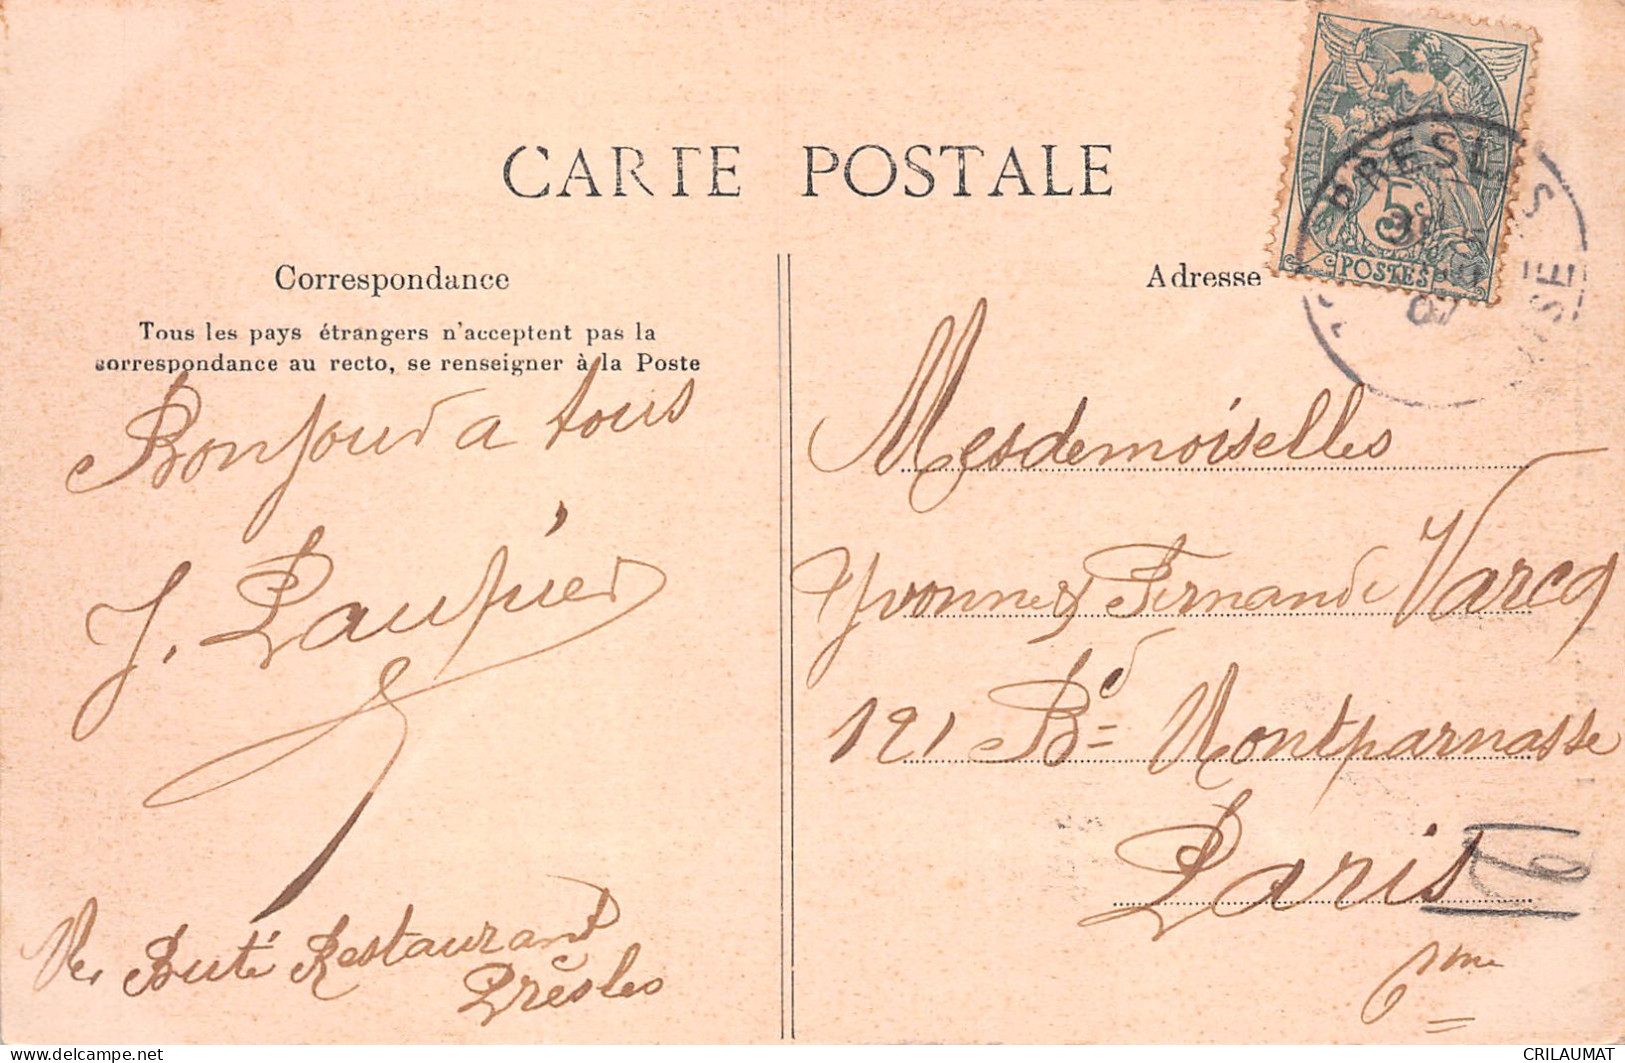 CARTE POSTALE
Correspondance
Tous les pays étrangers n'acceptent pas la
correspondance au recto, se renseigner à la Poste
Bonjour a tous
J. Paupier
Ve Buté Restaurant
Prèsles
Adresse
5c
POSTES
PRESLES
OISE
07
Mesdemoiselles
Yvonne & Fernande Varcq
121 Bd Montparnasse
Paris
6
CRILAUMAT